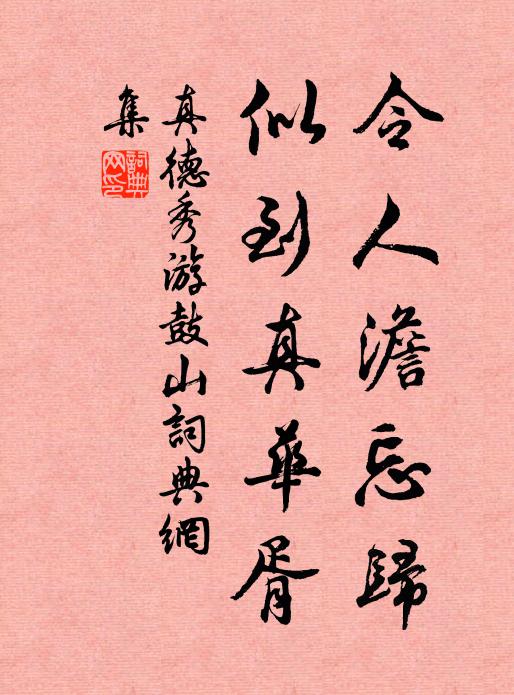 令人澹忘歸
似到真華胥
真德秀游鼓山詞典網
集
詞典
网印